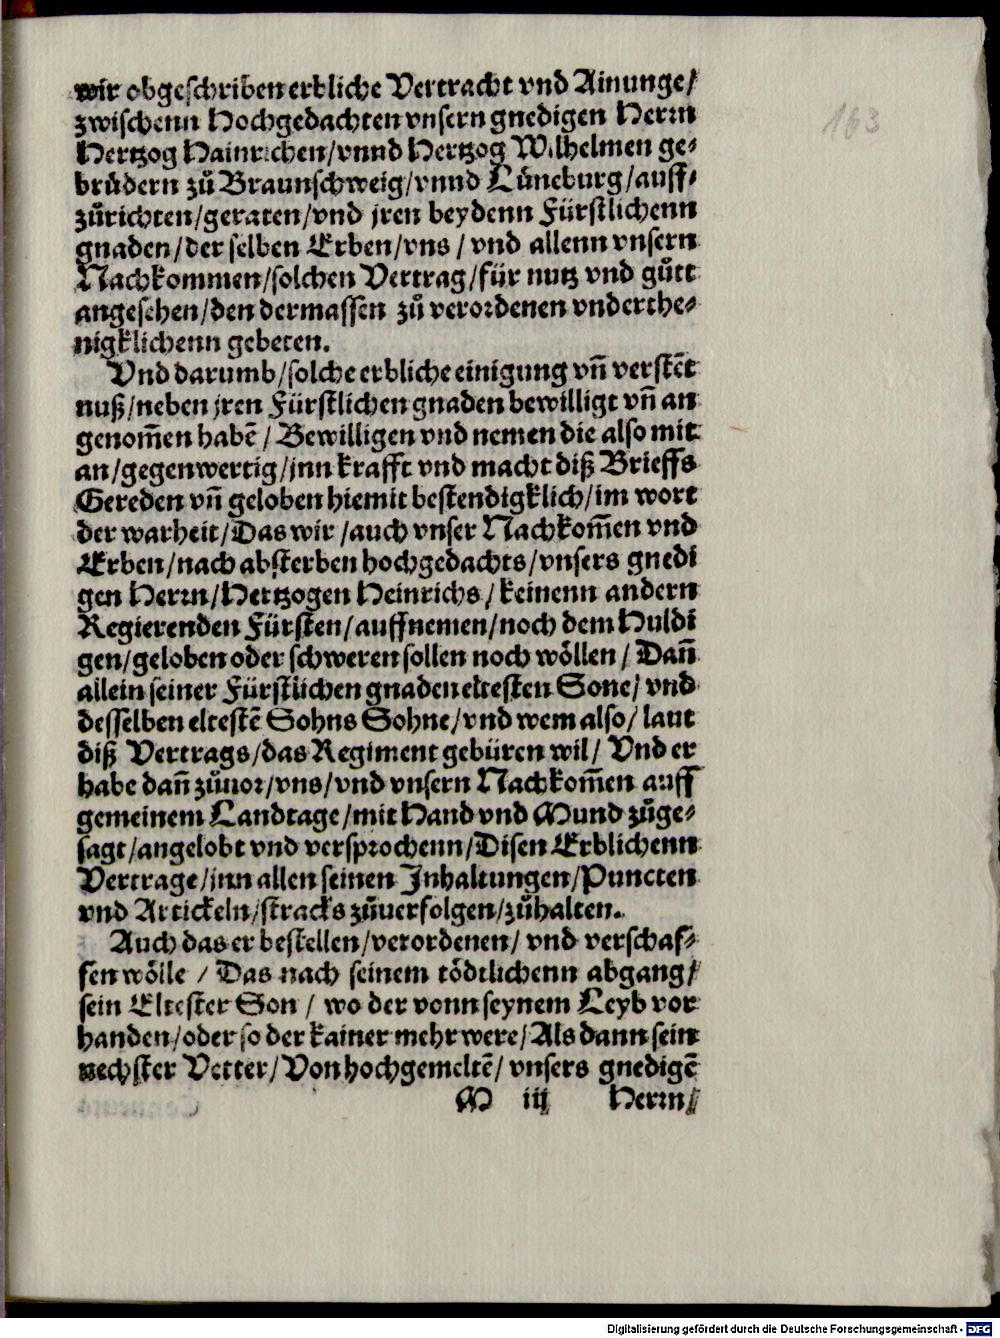 wir obgeschriben erbliche Vertracht vnd Ainunge/
zwischenn Hochgedachten vnsern gnedigen Herrn
Hertzog Hainrichen/vnnd Hertzog Wilhelmen ge⸗
brüdern zů Braunschweig/vnnd Lüneburg/auff⸗
zůrichten/geraten/vnd jren beydenn Fürstlichenn
gnaden/der selben Erben/vns/vnd allenn vnsern
Nachkommen/solchen Vertrag/für nutz vnd gůtt
angesehen/den dermassen zů verordenen vnderthe⸗
nigklichenn gebeten.
Vnd darumb/solche erbliche einigung vñ verstẽt
nuß/neben jren Fürstlichen gnaden bewilligt vñ an
genom̃en habẽ/Bewilligen vnd nemen die also mit
an/gegenwertig/jnn krafft vnd macht diß Brieffs
Gereden vñ geloben hiemit bestendigklich/im wort
der warheit/Das wir/auch vnser Nachkom̃en vnd
Erben/nach absterben hochgedachts/vnsers gnedi
gen Herrn/Hertzogen Heinrichs/keinenn andern
Regierenden Fürsten/auffnemen/noch dem Huldi
gen/geloben oder schweren sollen noch wöllen/Dañ
allein seiner Fürstlichen gnaden eltesten Sone/vnd
desselben eltestẽ Sohns Sohne/vnd wem also/laut
diß Vertrags/das Regiment gebüren wil/Vnd er
habe dañ zůuor/vns/vnd vnsern Nachkom̃en auff
gemeinem Landtage/mit Hand vnd Mund zůge⸗
sagt/angelobt vnd versprochenn/Disen Erblichenn
Vertrage/jnn allen seinen Inhaltungen/Puncten
vnd Artickeln/stracks zůuerfolgen/zůhalten.
Auch das er bestellen/verordenen/vnd verschaf⸗
fen wölle/Das nach seinem tödtlichenn abgang/
sein Eltester Son/wo der vonn seynem Leyb vor
handen/oder so der kainer mehr were/Als dann sein
nechster Vetter/Von hochgemeltẽ/vnsers gnedigẽ
M iij Herrn/
163
Digitalisierung gefördert durch die Deutsche Forschungsgemeinschaft - DFG